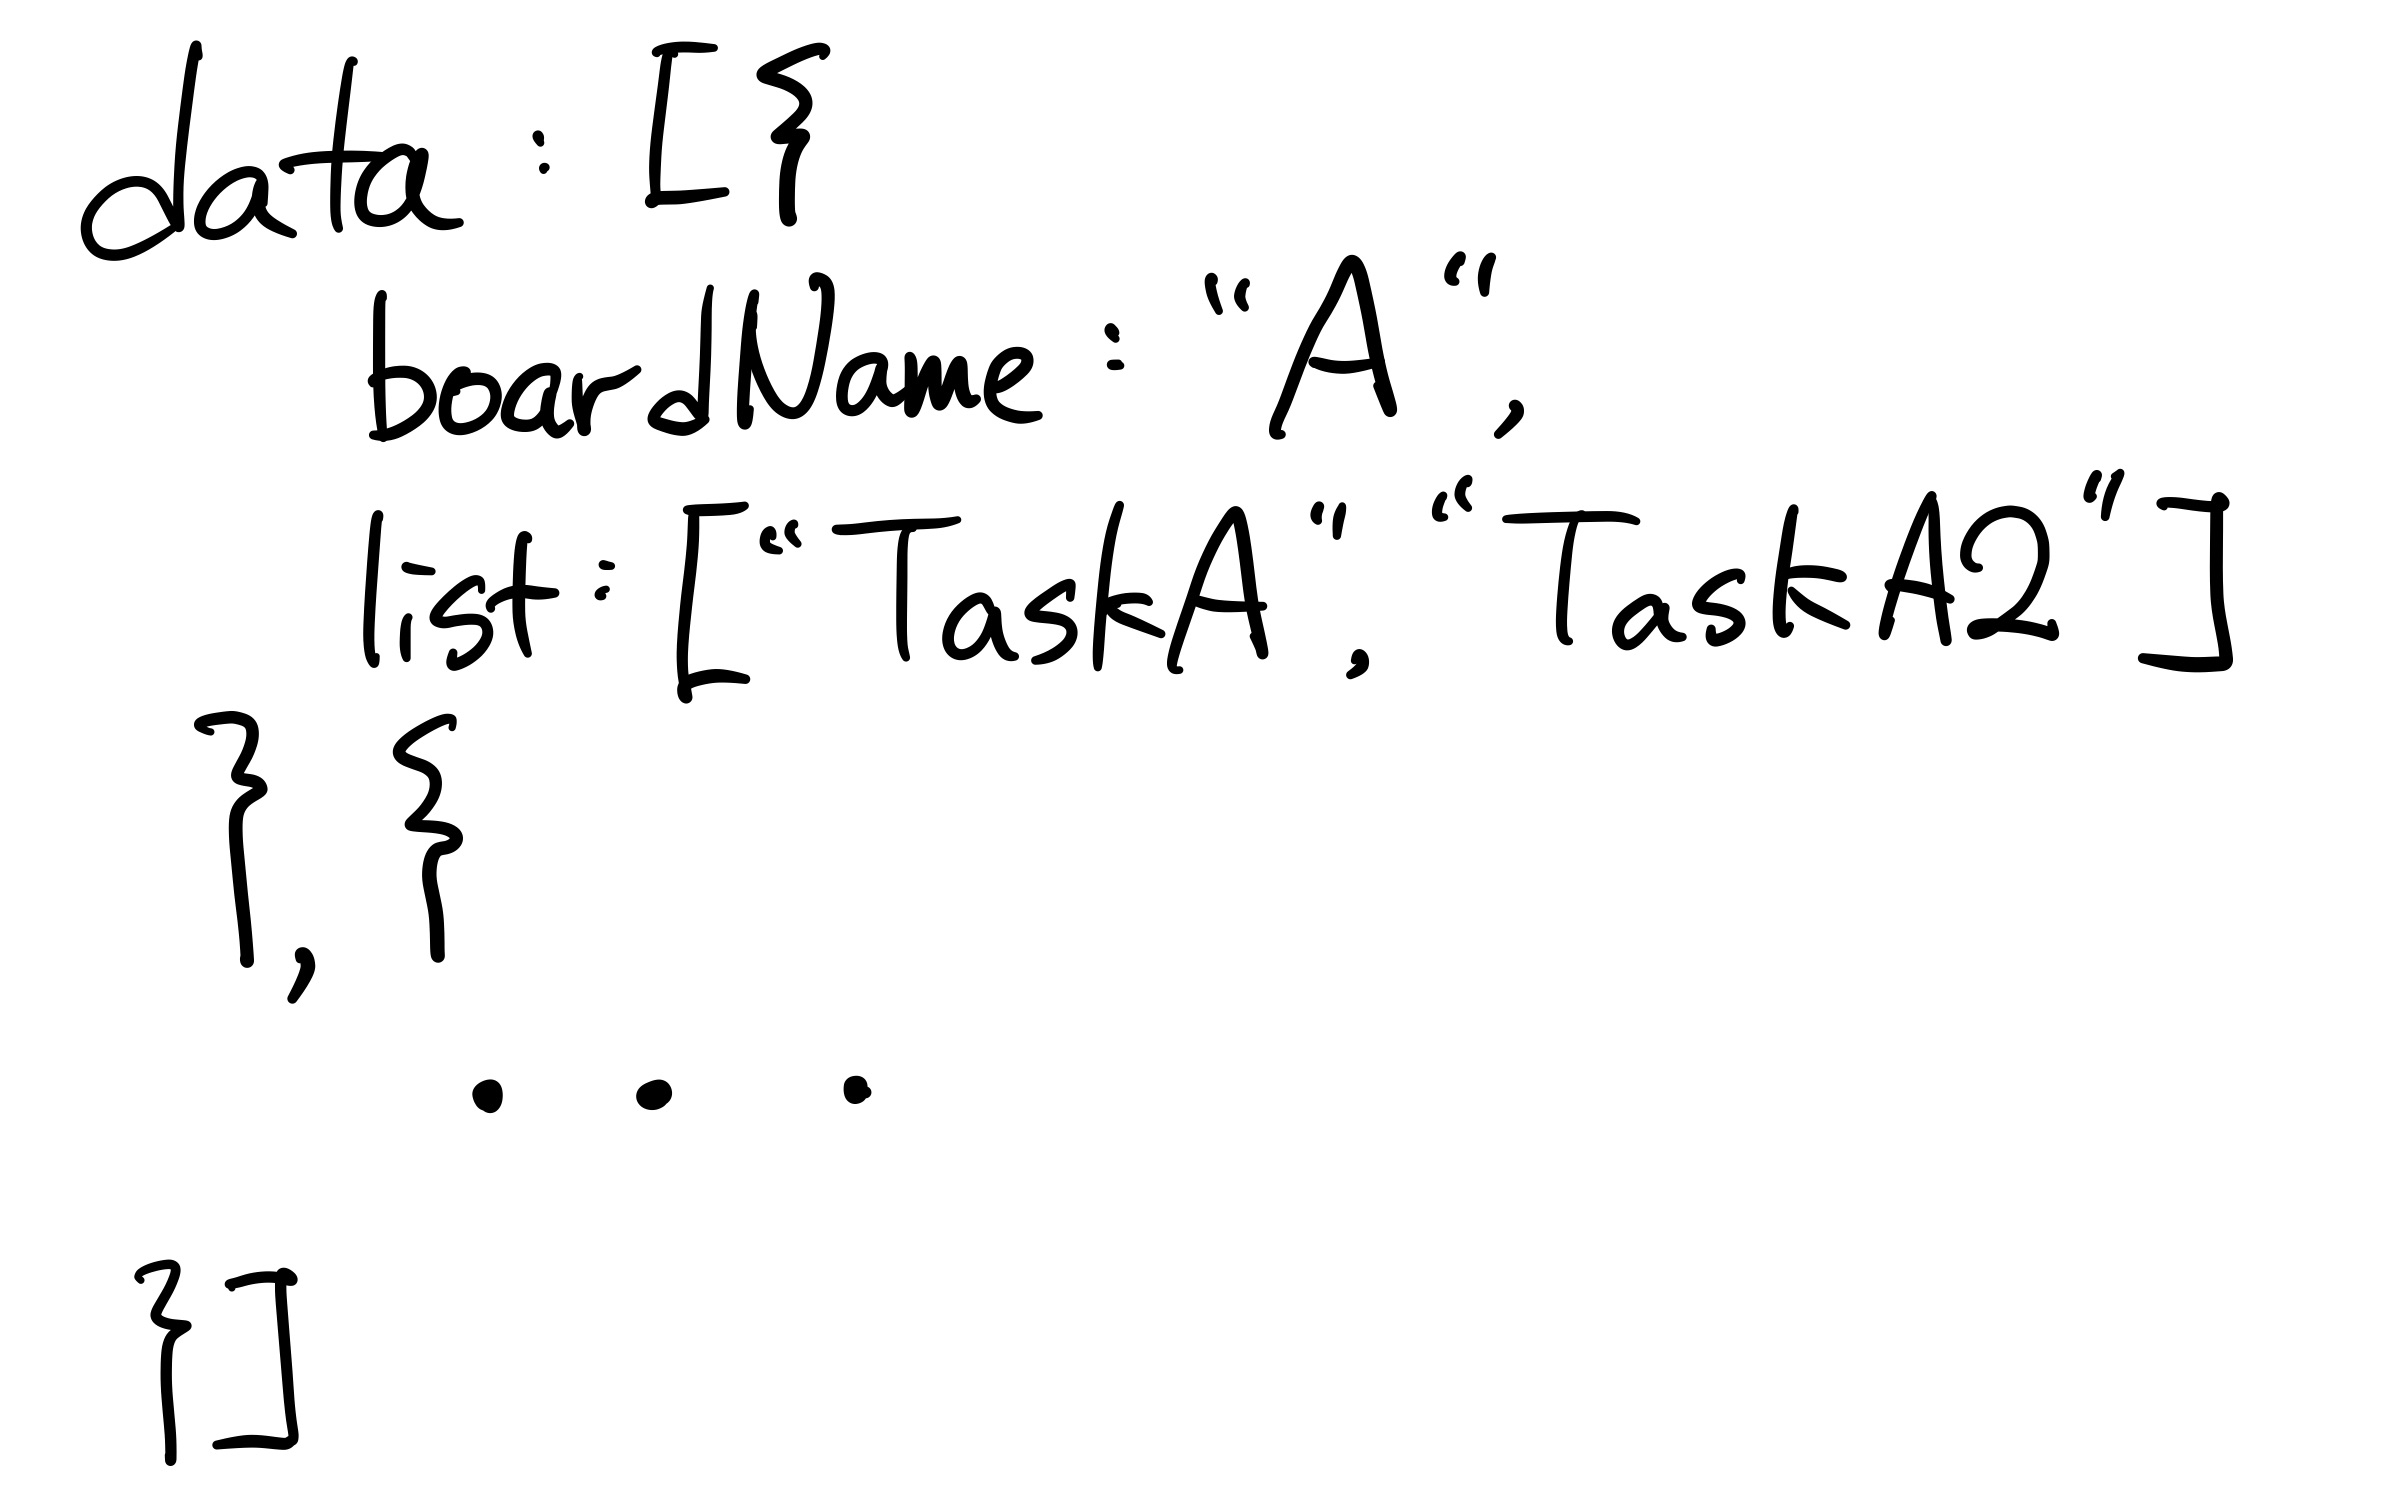 data : [{
boardName : "A",
list : ["TaskA", "TaskA2"]
}, {
...
}]